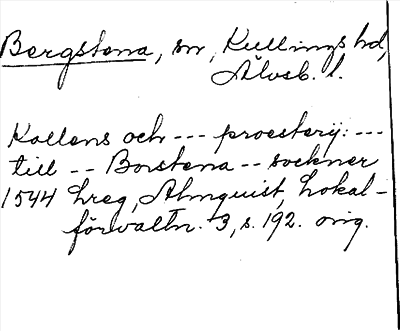 Bergstena, sn, Kullings hd,
Älvsb. l.
Kollens och --- proesterij: ---
till -- Borstena -- sockner
1544 hreg, Almquist, Lokal-
förvaltn. 3, s. 192. orig.